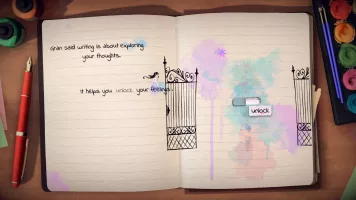 Gran said writing is about exploring
your thoughts.
It helps you unlock your feelings.
unlock